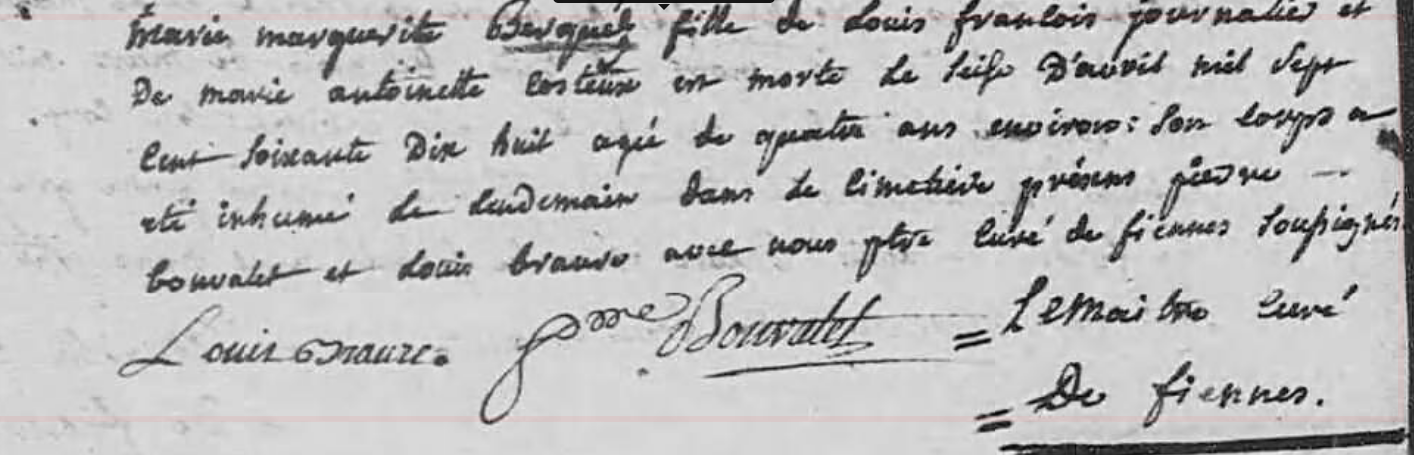 marie marguerite Berquéz fille de Louis francois journalier et
De marie antoinette Costeux est morte le seise D'avril mil sept
Cent soixante Dix huit agée de quatre ans environ : son corps a
eté inhumé le lendemain dans le cimetiere présens pierre
bouvalet et Louis braure avec nous ptre Curé de fiennes soussignés
Louis Braure. Bouvalet = Lemaitre Curé
= De fiennes.